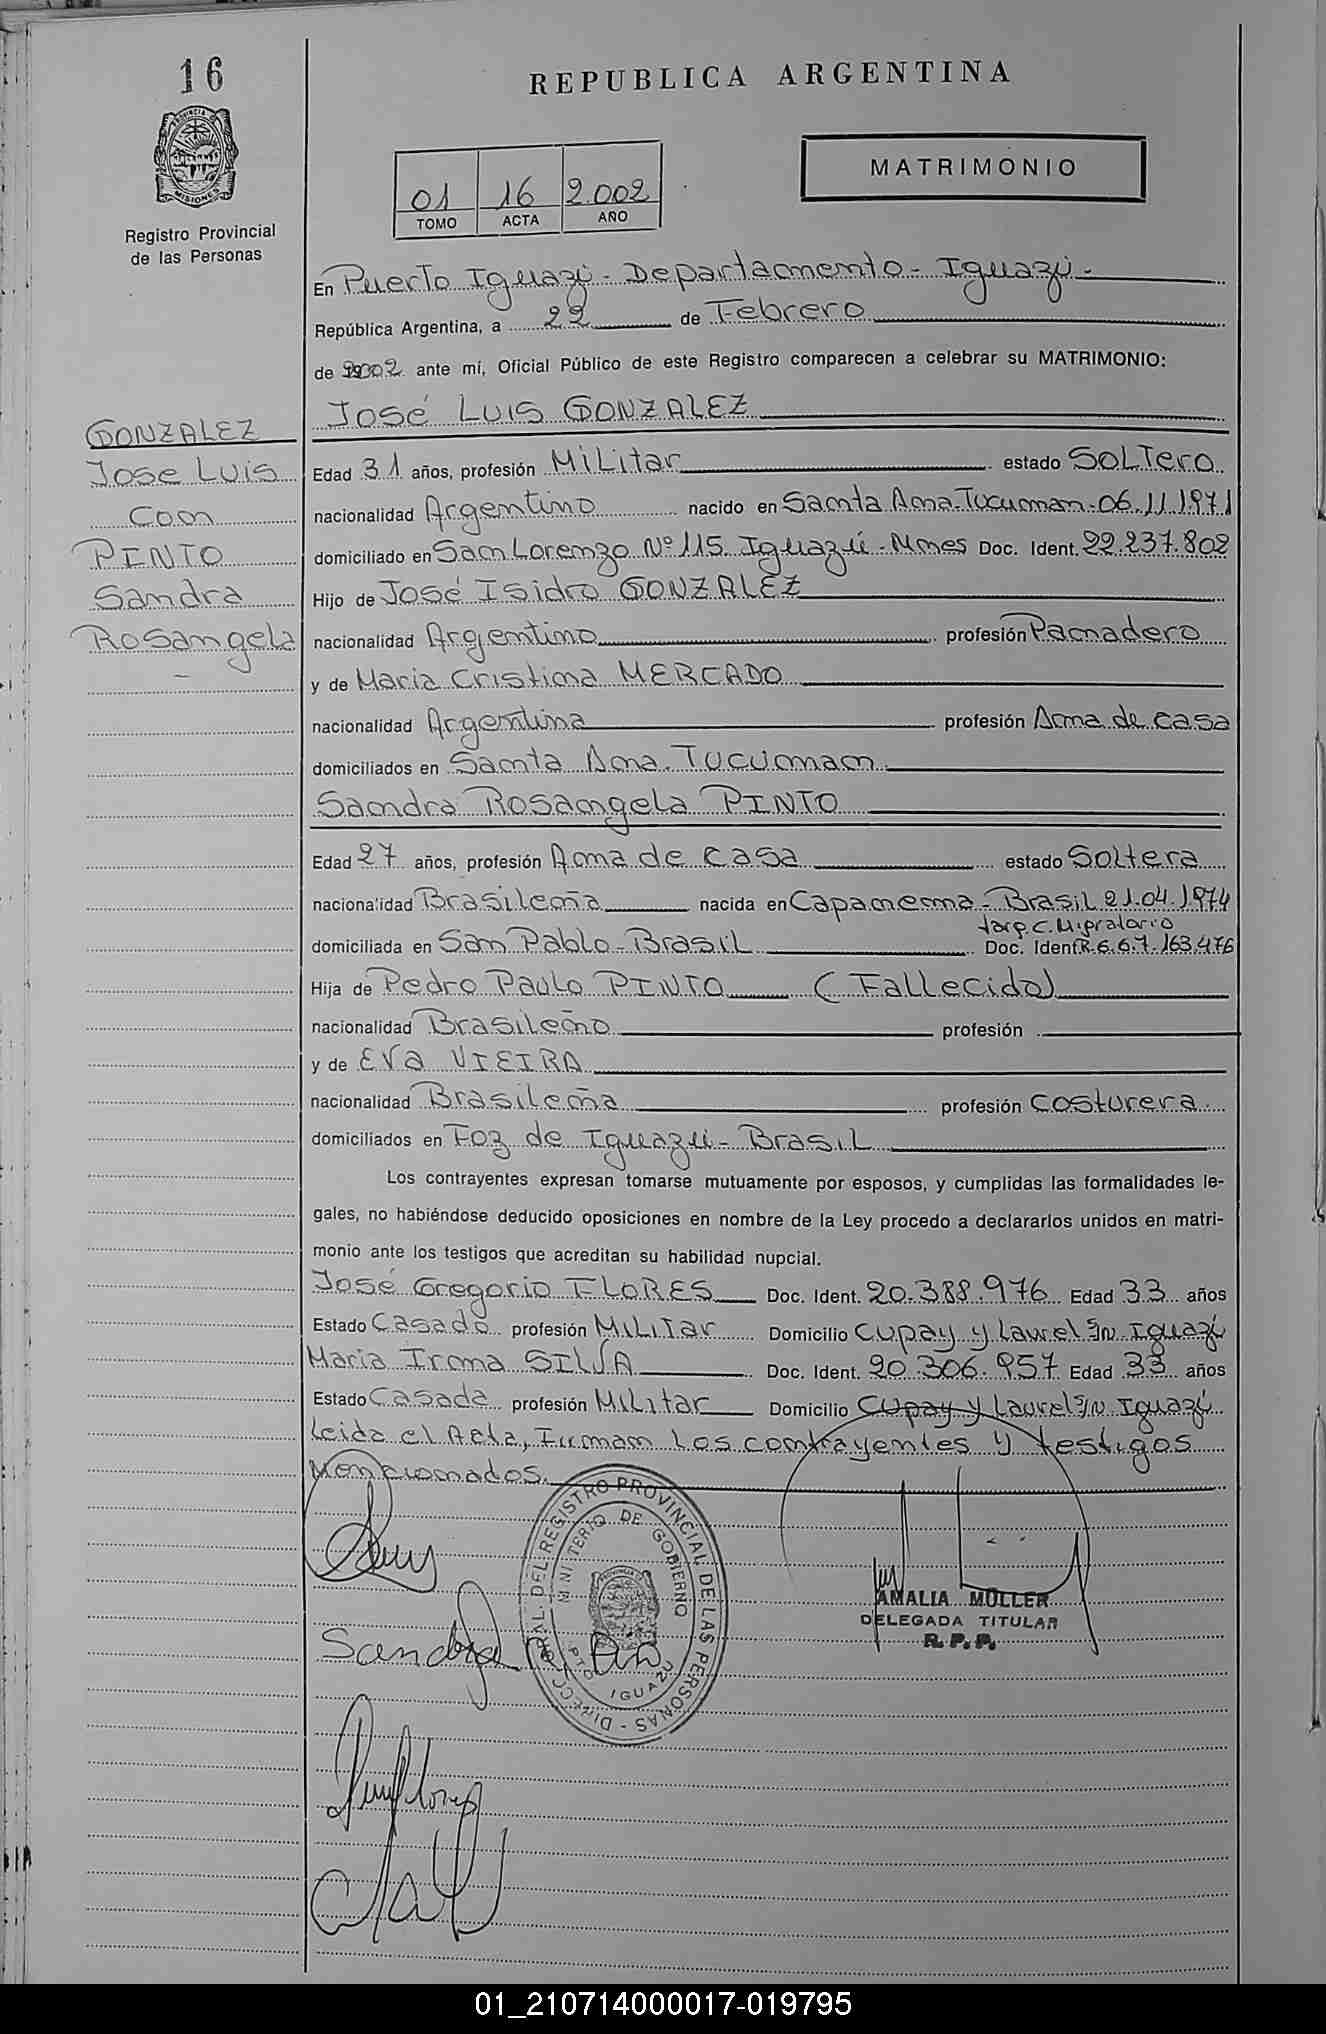 16
REPUBLICA ARGENTINA
MATRIMONIO
01 16 2.002
TOMO ACTA AÑO
Registro Provincial
de las Personas
En Puerto Iguazú - Departamento - Iguazú -
República Argentina, a 22 de Febrero
de 2002 ante mí, Oficial Público de este Registro comparecen a celebrar su MATRIMONIO:
José Luis GONZALEZ
GONZALEZ
Jose Luis
Con
PINTO
Sandra
Rosangela
Edad 31 años, profesión Militar estado Soltero
nacionalidad Argentino nacido en Santa Ana-Tucuman-06.11.1971
domiciliado en San Lorenzo Nº 115 Iguazú - Mnes Doc. Ident. 22.237.802
Hijo de José Isidro GONZALEZ
nacionalidad Argentino profesión Panadero
y de Maria Cristina MERCADO
nacionalidad Argentina profesión Ama de casa
domiciliados en Santa Ana. Tucuman
Sandra Rosangela PINTO
Edad 27 años, profesión Ama de casa estado Soltera
nacionalidad Brasileña nacida en Capanema - Brasil 21.04.1974
tarp. C. Migratorio
domiciliada en San Pablo - Brasil Doc. Ident. R.6.6.7.163.476
Hija de Pedro Paulo PINTO (Fallecido)
nacionalidad Brasileño profesión
y de Eva VIEIRA
nacionalidad Brasileña profesión costurera
domiciliados en Foz de Iguazú - Brasil
Los contrayentes expresan tomarse mutuamente por esposos, y cumplidas las formalidades le-
gales, no habiéndose deducido oposiciones en nombre de la Ley procedo a declararlos unidos en matri-
monio ante los testigos que acreditan su habilidad nupcial.
José Gregorio FLORES Doc. Ident. 20.388.976 Edad 33 años
Estado Casado profesión Militar Domicilio Cupay y Laurel S/N Iguazú
Maria Irma SILVA Doc. Ident. 20.306.957 Edad 33 años
Estado Casada profesión Militar Domicilio Cupay y Laurel S/N Iguazú
Leida el Acta, Firman los contrayentes y testigos
Mencionados.
DIRECC. GRAL. DEL REGISTRO PROVINCIAL DE LAS PERSONAS -
MINISTERIO DE GOBIERNO
PTO. IGUAZU
AMALIA MÜLLER
DELEGADA TITULAR
R.P.P.
Sandra
01_210714000017-019795